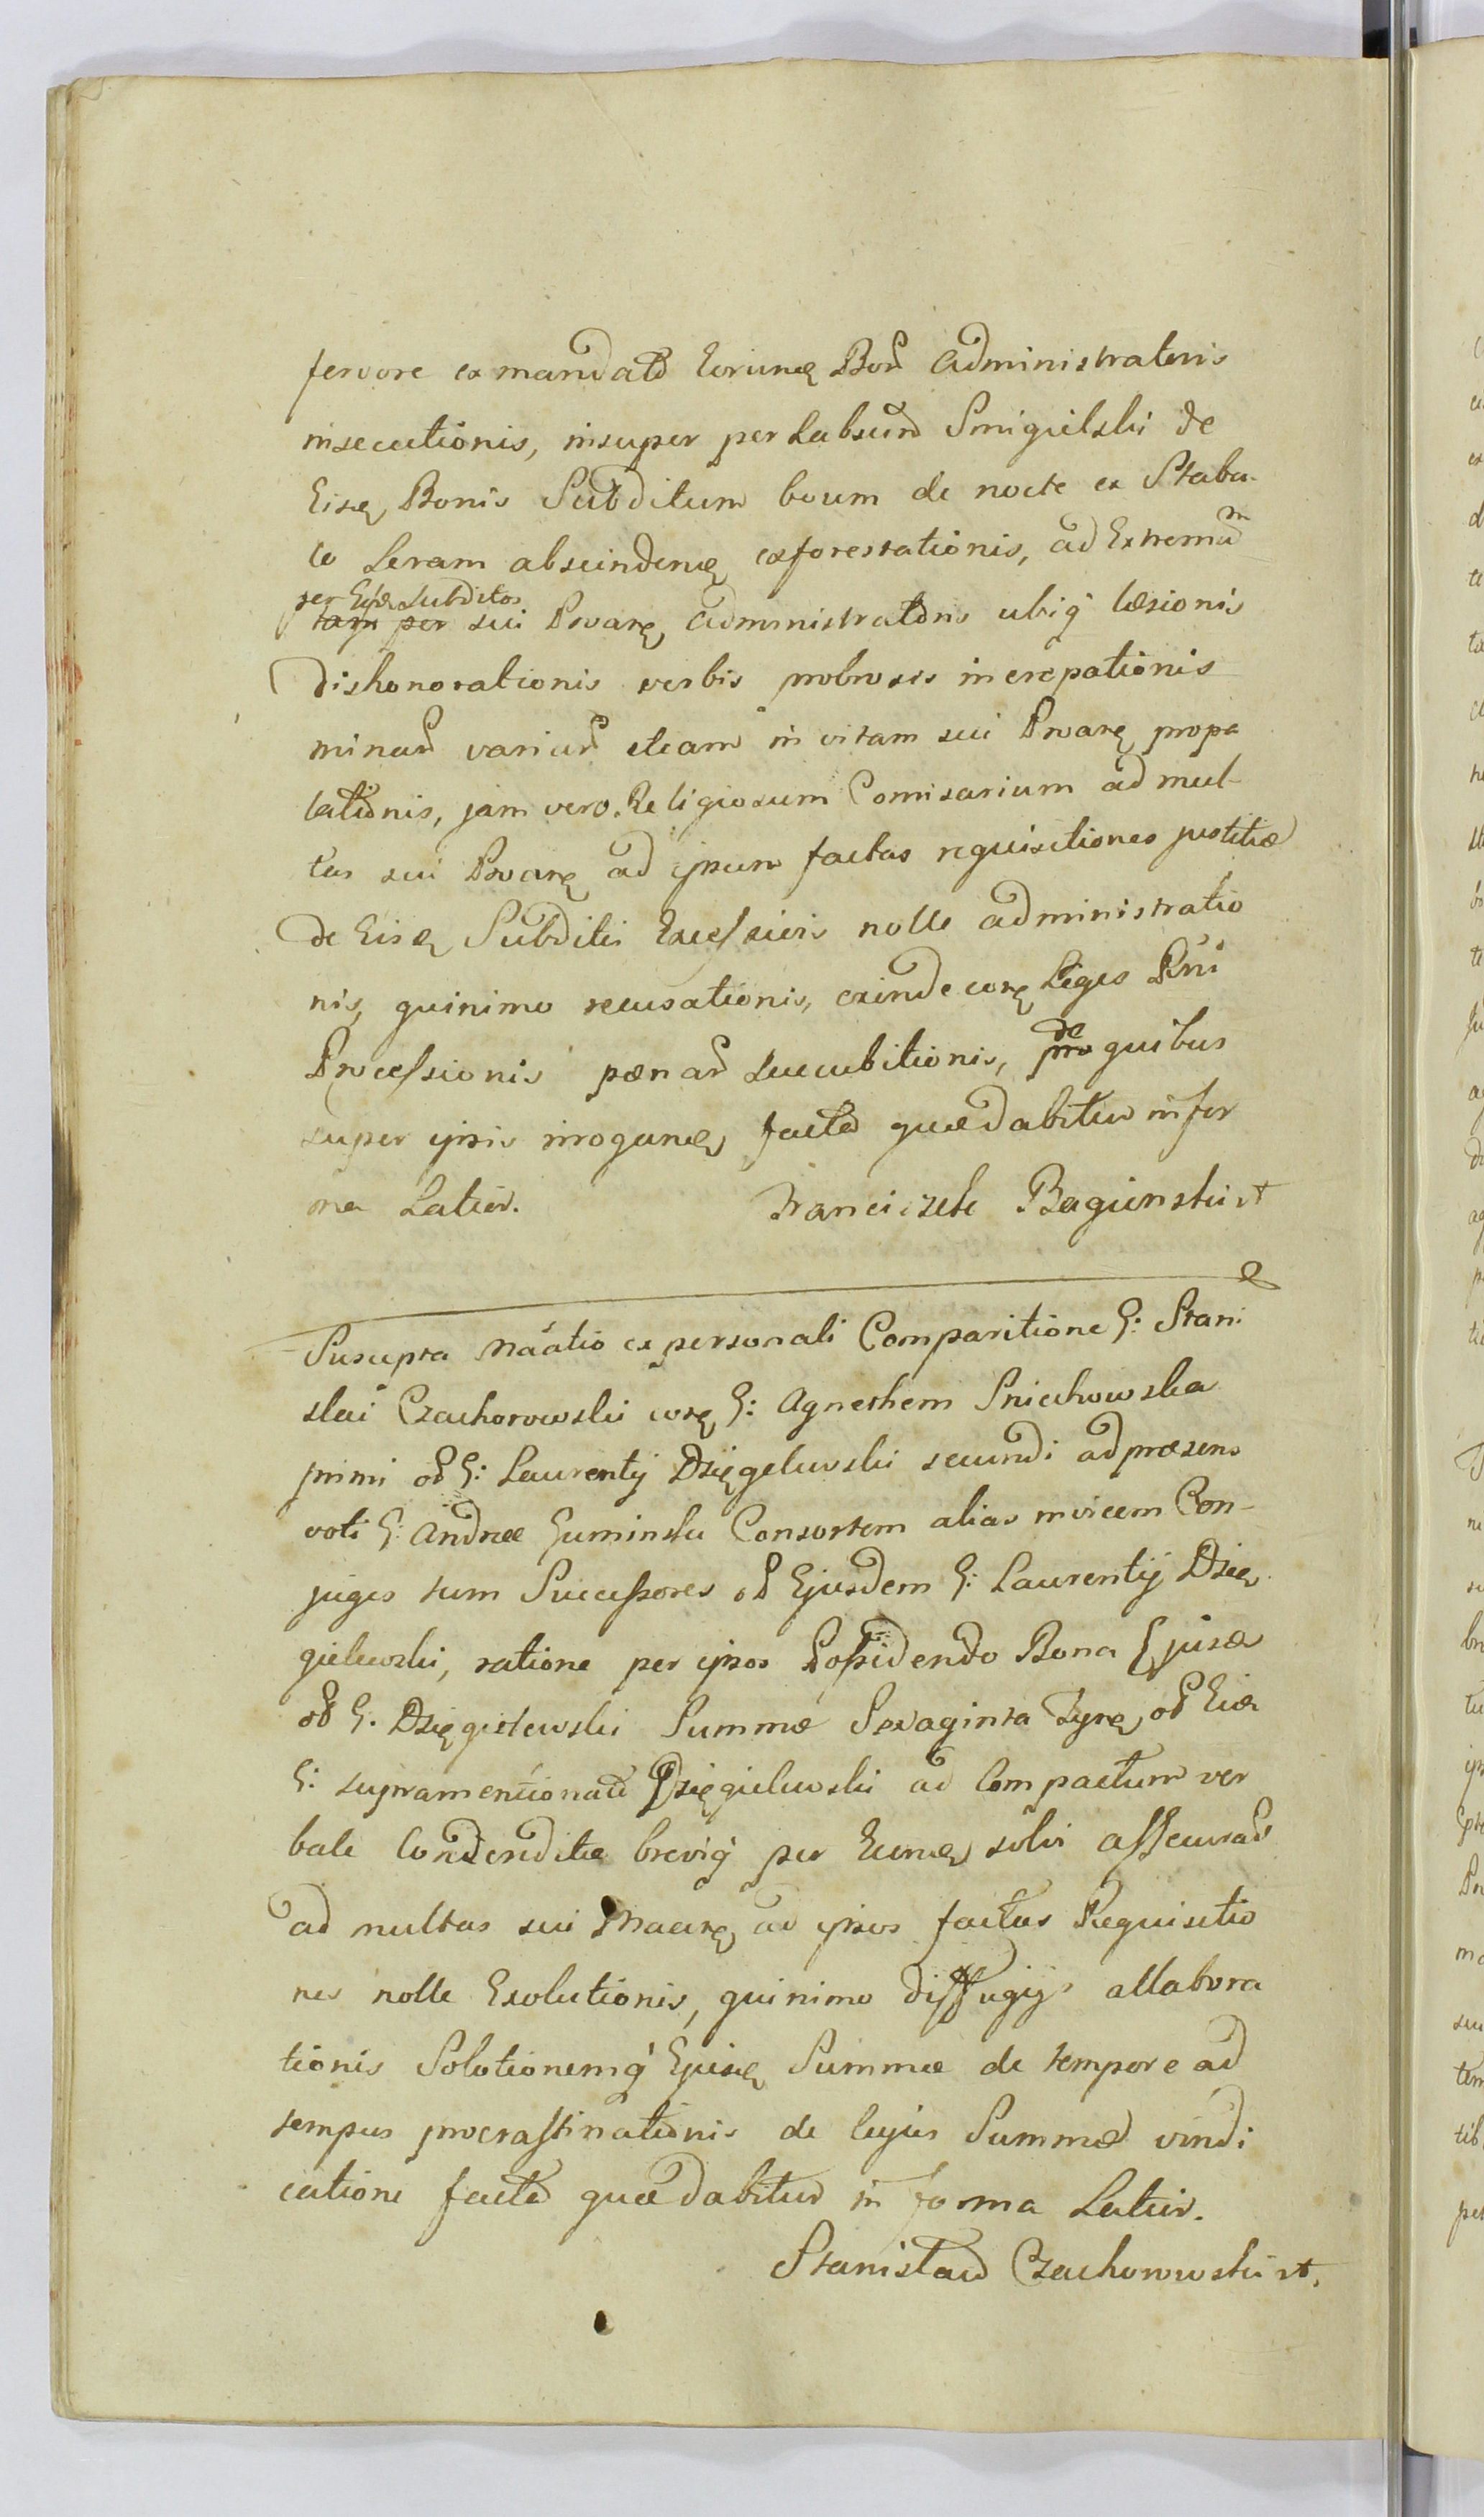 fervore ex mandato eorunq Bor Administratoris
insecutionis, insuper per Labsund Smigielski de
Eisq Bonis Subditum boum de nocte ex Stabu-
lo Seram abscindenq exforestationis, ad Extremum
per Ejsd Subditos
tam per sui Proarq Administratoris ubiq læsionis
dishonorationis verbis probrosis increpationis
minar variar etiam in vitam sui Proarq propa
lationis, jam vero Religiosum Comisarium ad mul-
tas sui Proarq ad ipsum factas requisitiones justitiæ
de Eisq Subditis Excessivis nolle administratio
nis, quinimo recusationis, exinde corq Leges Rni
Processionis pænar Succubitionis, de pro quibus
super ipsis irroganq facta quæ dabitur in for
ma Latior. Franciszek Bagienski mp
Suscepta Maatio ex personali Comparitione G: Stani
slai Czachorowski corq G: Agnethem Sniechowska
primi ob G: Laurentij Dzięgelewski secundi ad præsens
voti G: Andreæ Guminski Consortem alias invicem Con-
juges tum Successores ob Ejusdem G: Laurentij Dzię
gielewski, ratione per ipsos Possidendo Bona Ejusd
ob G. Dzięgielewski Summæ Sexaginta Tynq ob Eid
G: supramentionato Dzięgielewski ad Compactum ver
bale Condenditæ breviq per Eunq solvi assecurat
ad multas sui Maarq ad ipsos factas Requisitio
nes nolle Exolutionis, quinimo diffugijs allabora
tionis Solutionemq Ejusq Summæ de tempore ad
tempus procrastinationis de Cujus Summæ vindi
catione facta quæ dabitur in forma Latior.
Stanisław Czachorowski mp.